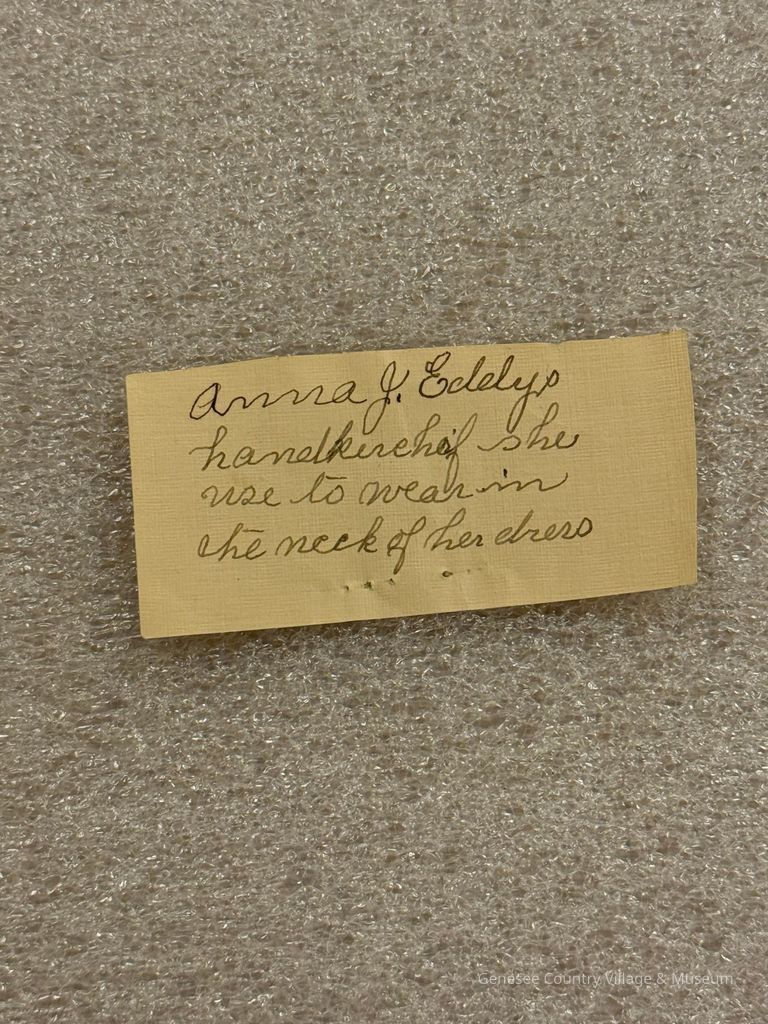 Anna J. Eddys
handkirchif she
use to wear in
the neck of her dress
Genesee Country Village & Museum